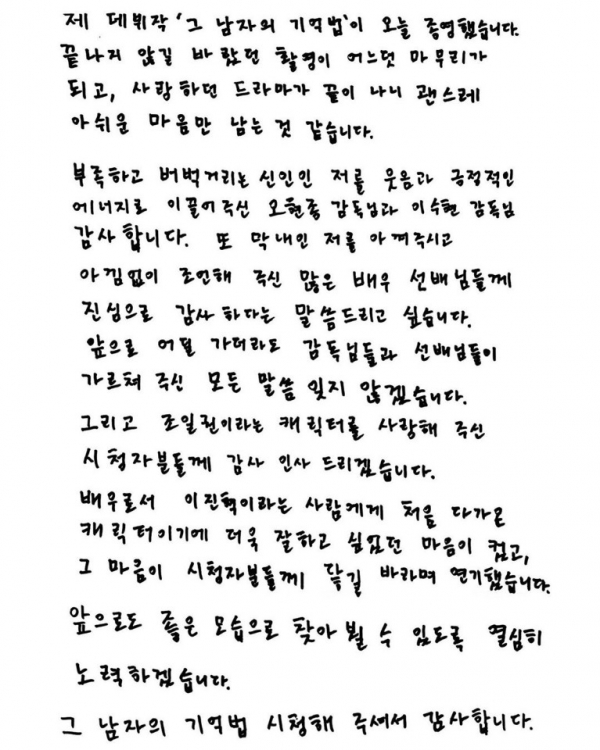 제 데뷔작 '그 남자의 기억법'이 오늘 종영했습니다.
끝나지 않길 바랐던 촬영이 어느덧 마무리가
되고, 사랑하던 드라마가 끝이 나니 괜스레
아쉬운 마음만 남는 것 같습니다.
부족하고 버벅거리는 신인인 저를 웃음과 긍정적인
에너지로 이끌어주신 오현종 감독님과 이수현 감독님
감사합니다. 또 막내인 저를 아껴주시고
아낌없이 조언해 주신 많은 배우 선배님들께
진심으로 감사하다는 말씀드리고 싶습니다.
앞으로 어딜 가더라도 감독님들과 선배님들이
가르쳐 주신 모든 말씀 잊지 않겠습니다.
그리고 조일권이라는 캐릭터를 사랑해 주신
시청자분들께 감사 인사 드리겠습니다.
배우로서 이진혁이라는 사람에게 처음 다가온
캐릭터이기에 더욱 잘하고 싶었던 마음이 컸고,
그 마음이 시청자분들께 닿길 바라며 연기했습니다.
앞으로도 좋은 모습으로 찾아 뵐 수 있도록 열심히
노력하겠습니다.
그 남자의 기억법 시청해 주셔서 감사합니다.